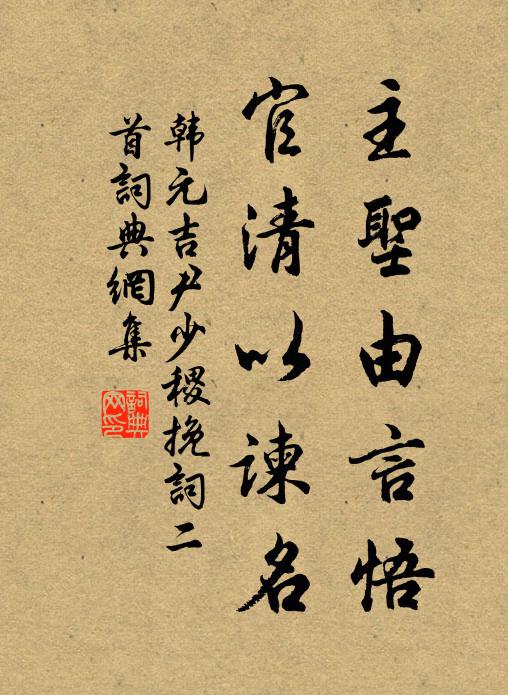 主聖由言悟
官清以諫名
韩元吉尹少稷挽詞二
首詞典網集
詞典
网印